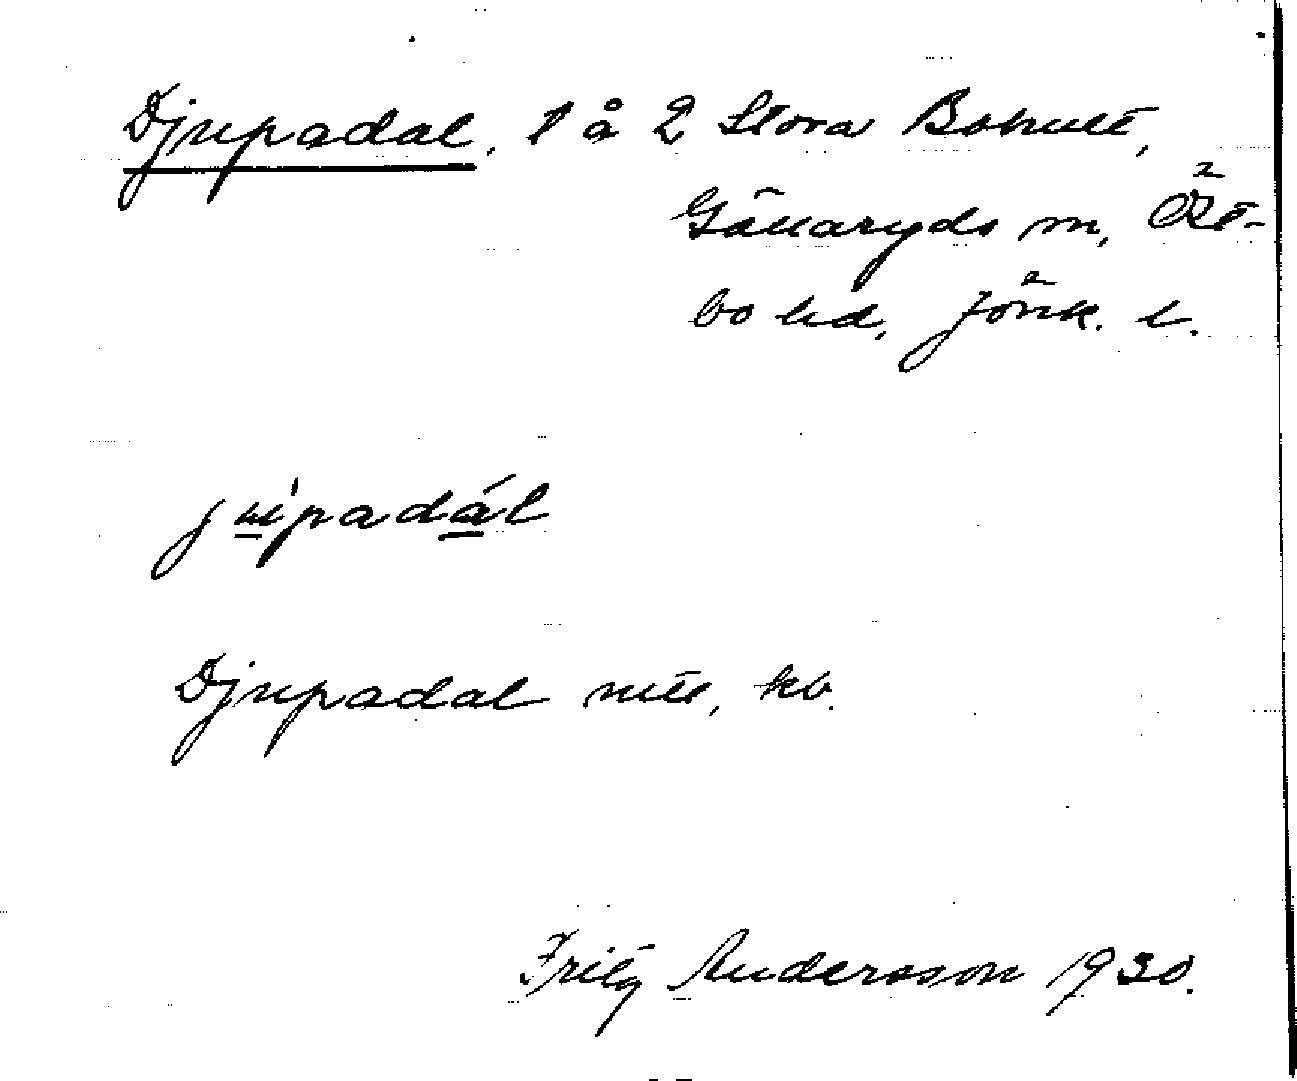 Djupadal, 1 å 2 Stora Bohult,
Gällaryds sn, Öst-
bo hd, Jönk. l.
jùpadál
Djupadal utt, kb.
Fritz Andersson 1930.